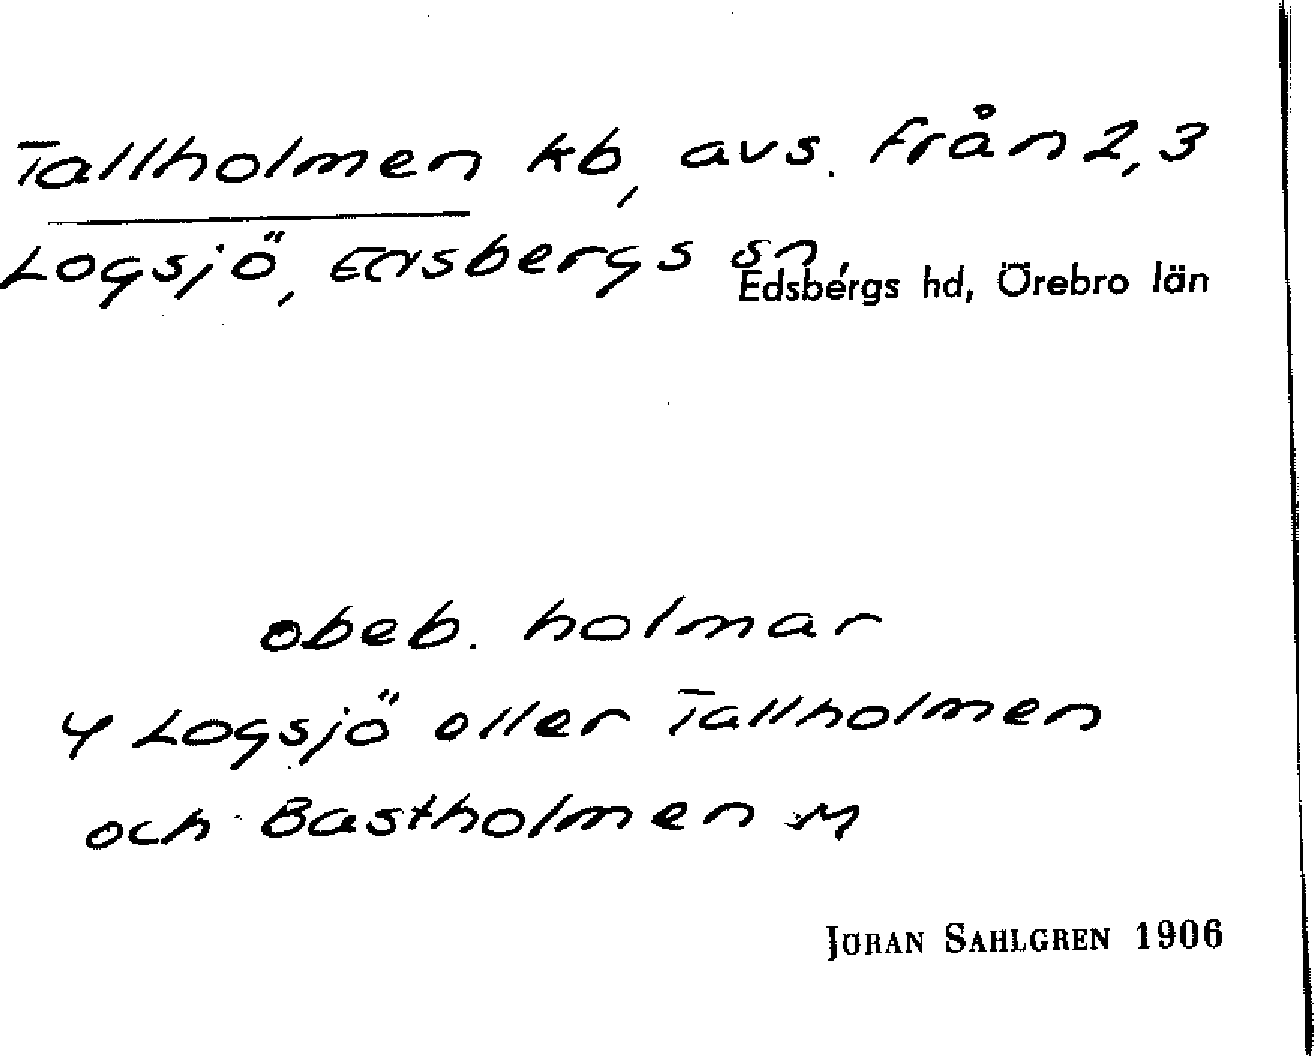 Tallholmen kb, avs. från 2,3
Logsjö, Edsbergs sn,
Edsbergs hd, Örebro län
obeb. holmar
4 Logsjö eller Tallholmen
och Bastholmen M
JÖRAN SAHLGREN 1906